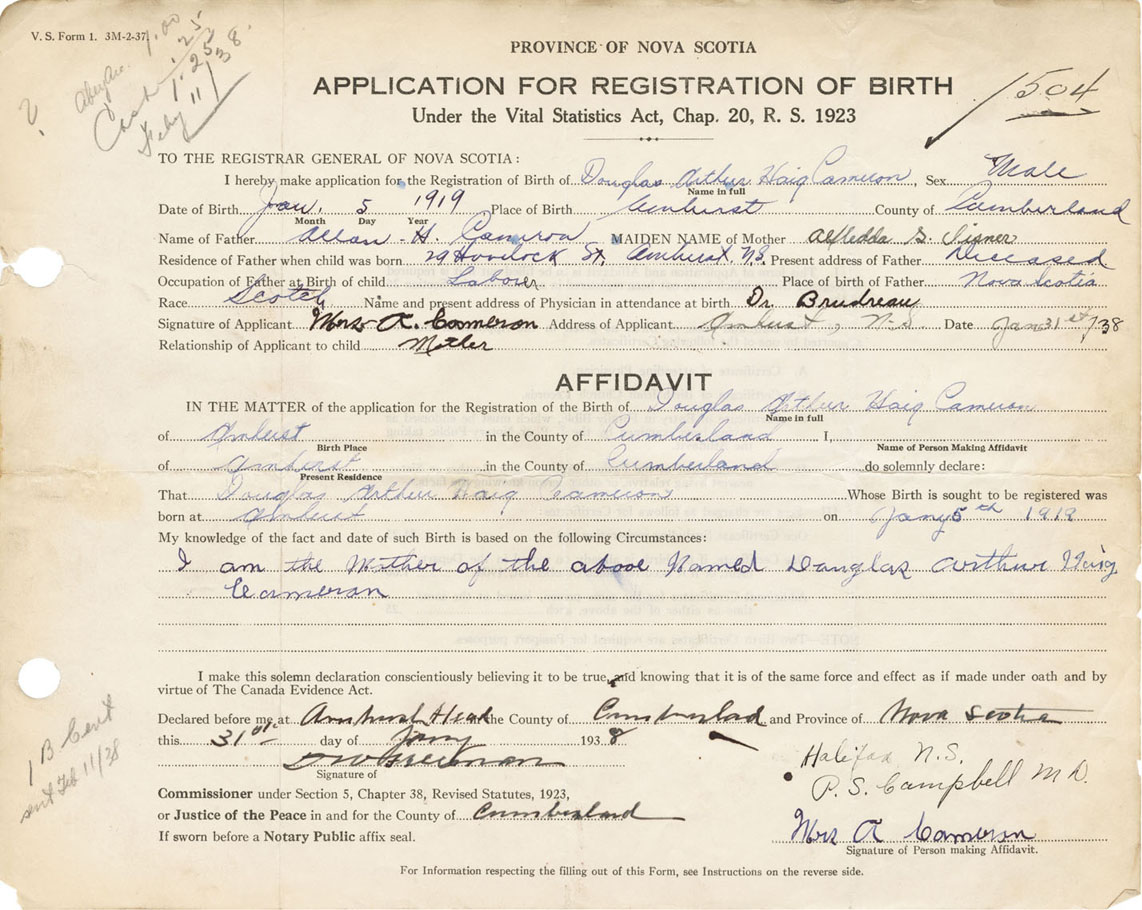 V. S. Form 1. 3M-2-37
1.00
.25
Cash 1.25
Feby 11/38.
?
PROVINCE OF NOVA SCOTIA
APPLICATION FOR REGISTRATION OF BIRTH
1504
Under the Vital Statistics Act, Chap. 20, R. S. 1923
TO THE REGISTRAR GENERAL OF NOVA SCOTIA:
I hereby make application for the Registration of Birth of Douglas Arthur Haig Cameron, Sex Male
Name in full
Date of Birth Jan. 5 1919 Place of Birth Amhurst County of Cumberland
Month Day Year
Name of Father Allan H. Cameron MAIDEN NAME of Mother Alfledda G.
Residence of Father when child was born 29 Havelock St, Amhurst, N.S. Present address of Father Deceased
Occupation of Father at Birth of child Laborer Place of birth of Father Nova Scotia
Race Scotch Name and present address of Physician in attendance at birth Dr. Brudreau
Signature of Applicant Mrs A. Cameron Address of Applicant Amhurst, N-S. Date Jan 31st/38
Relationship of Applicant to child Mother
AFFIDAVIT
IN THE MATTER of the application for the Registration of the Birth of Douglas Arthur Haig Cameron
Name in full
of Amherst in the County of Cumberland I,
Birth Place Name of Person Making Affidavit
of Amherst in the County of Cumberland do solemnly declare:
Present Residence
That Douglas Arthur Haig Cameron Whose Birth is sought to be registered was
born at Amhurst on Jany 5th 1919
My knowledge of the fact and date of such Birth is based on the following Circumstances:
I am the Mother of the above Named Douglas Arthur Haig
Cameron
I make this solemn declaration conscientiously believing it to be true, and knowing that it is of the same force and effect as if made under oath and by
virtue of The Canada Evidence Act.
Declared before me at Amhurst Head the County of Cumberland and Province of Nova Scotia
this 31st day of Jany 1938
Signature of
Halifax N.S.
P.S. Campbell M.D.
1 B Cert
sent Feb 11/38
Commissioner under Section 5, Chapter 38, Revised Statutes, 1923,
or Justice of the Peace in and for the County of Cumberland
If sworn before a Notary Public affix seal.
Mrs A Cameron
Signature of Person making Affidavit.
For Information respecting the filling out of this Form, see Instructions on the reverse side.